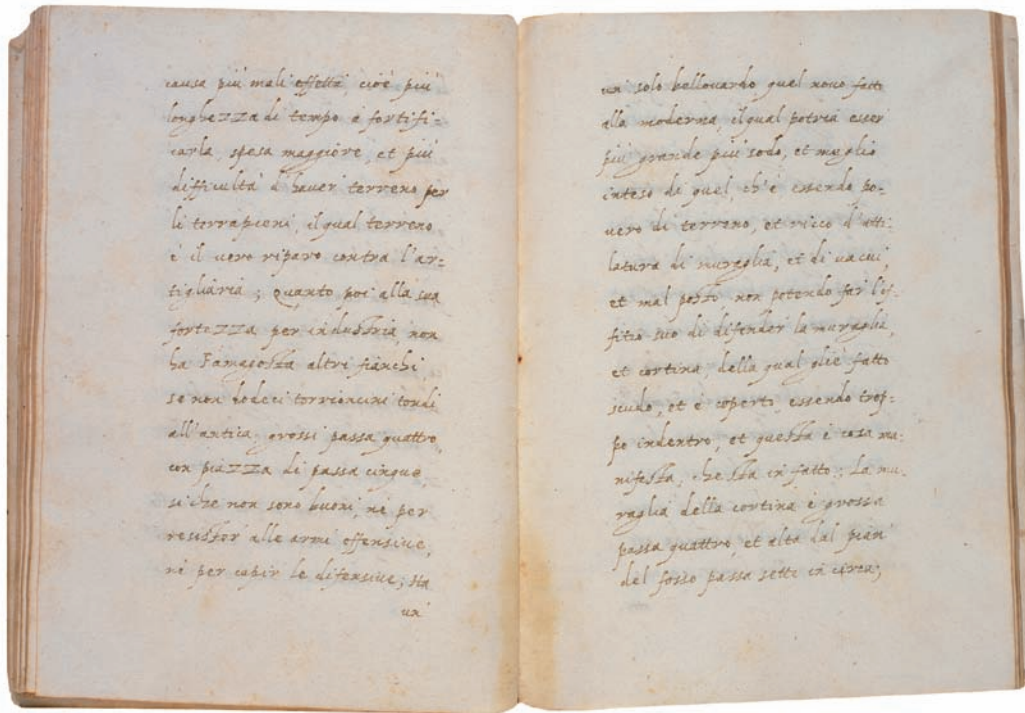 causa più mali effetti, cioè più
longhezza di tempo à fortifi=
carla, spesa maggiore, et più
difficultà d'haver terreno per
li terrapieni, il qual terreno
è il vero riparo contra l'ar=
tigliaria; Quanto poi alla sua
fortezza per industria, non
ha Famagosta altri fianchi,
se non dodeci torrioncini tondi
all'antica, grossi passa quattro,
con piazza di passa cinque,
si che non sono buoni, nè per
resister alle armi offensive,
nè per capir le difensive; Ha
un'
un' solo bellouardo quel novo fatto
alla moderna, il qual potria esser
più grande più sodo, et meglio
inteso di quel, ch'è essendo po=
vero di terreno, et ricco d'atti=
latura di muraglia, et di vacui,
et mal posto non potendo far l'of=
fitio suo di difender la muraglia,
et cortina, della qual gliè fatto
scudo, et è coperto, essendo trop=
po indentro, et questa è cosa ma=
nifesta, che sta in fatto; La mu=
raglia della cortina è grossa
passa quattro, et alta dal pian
del fosso passa sette in circa;